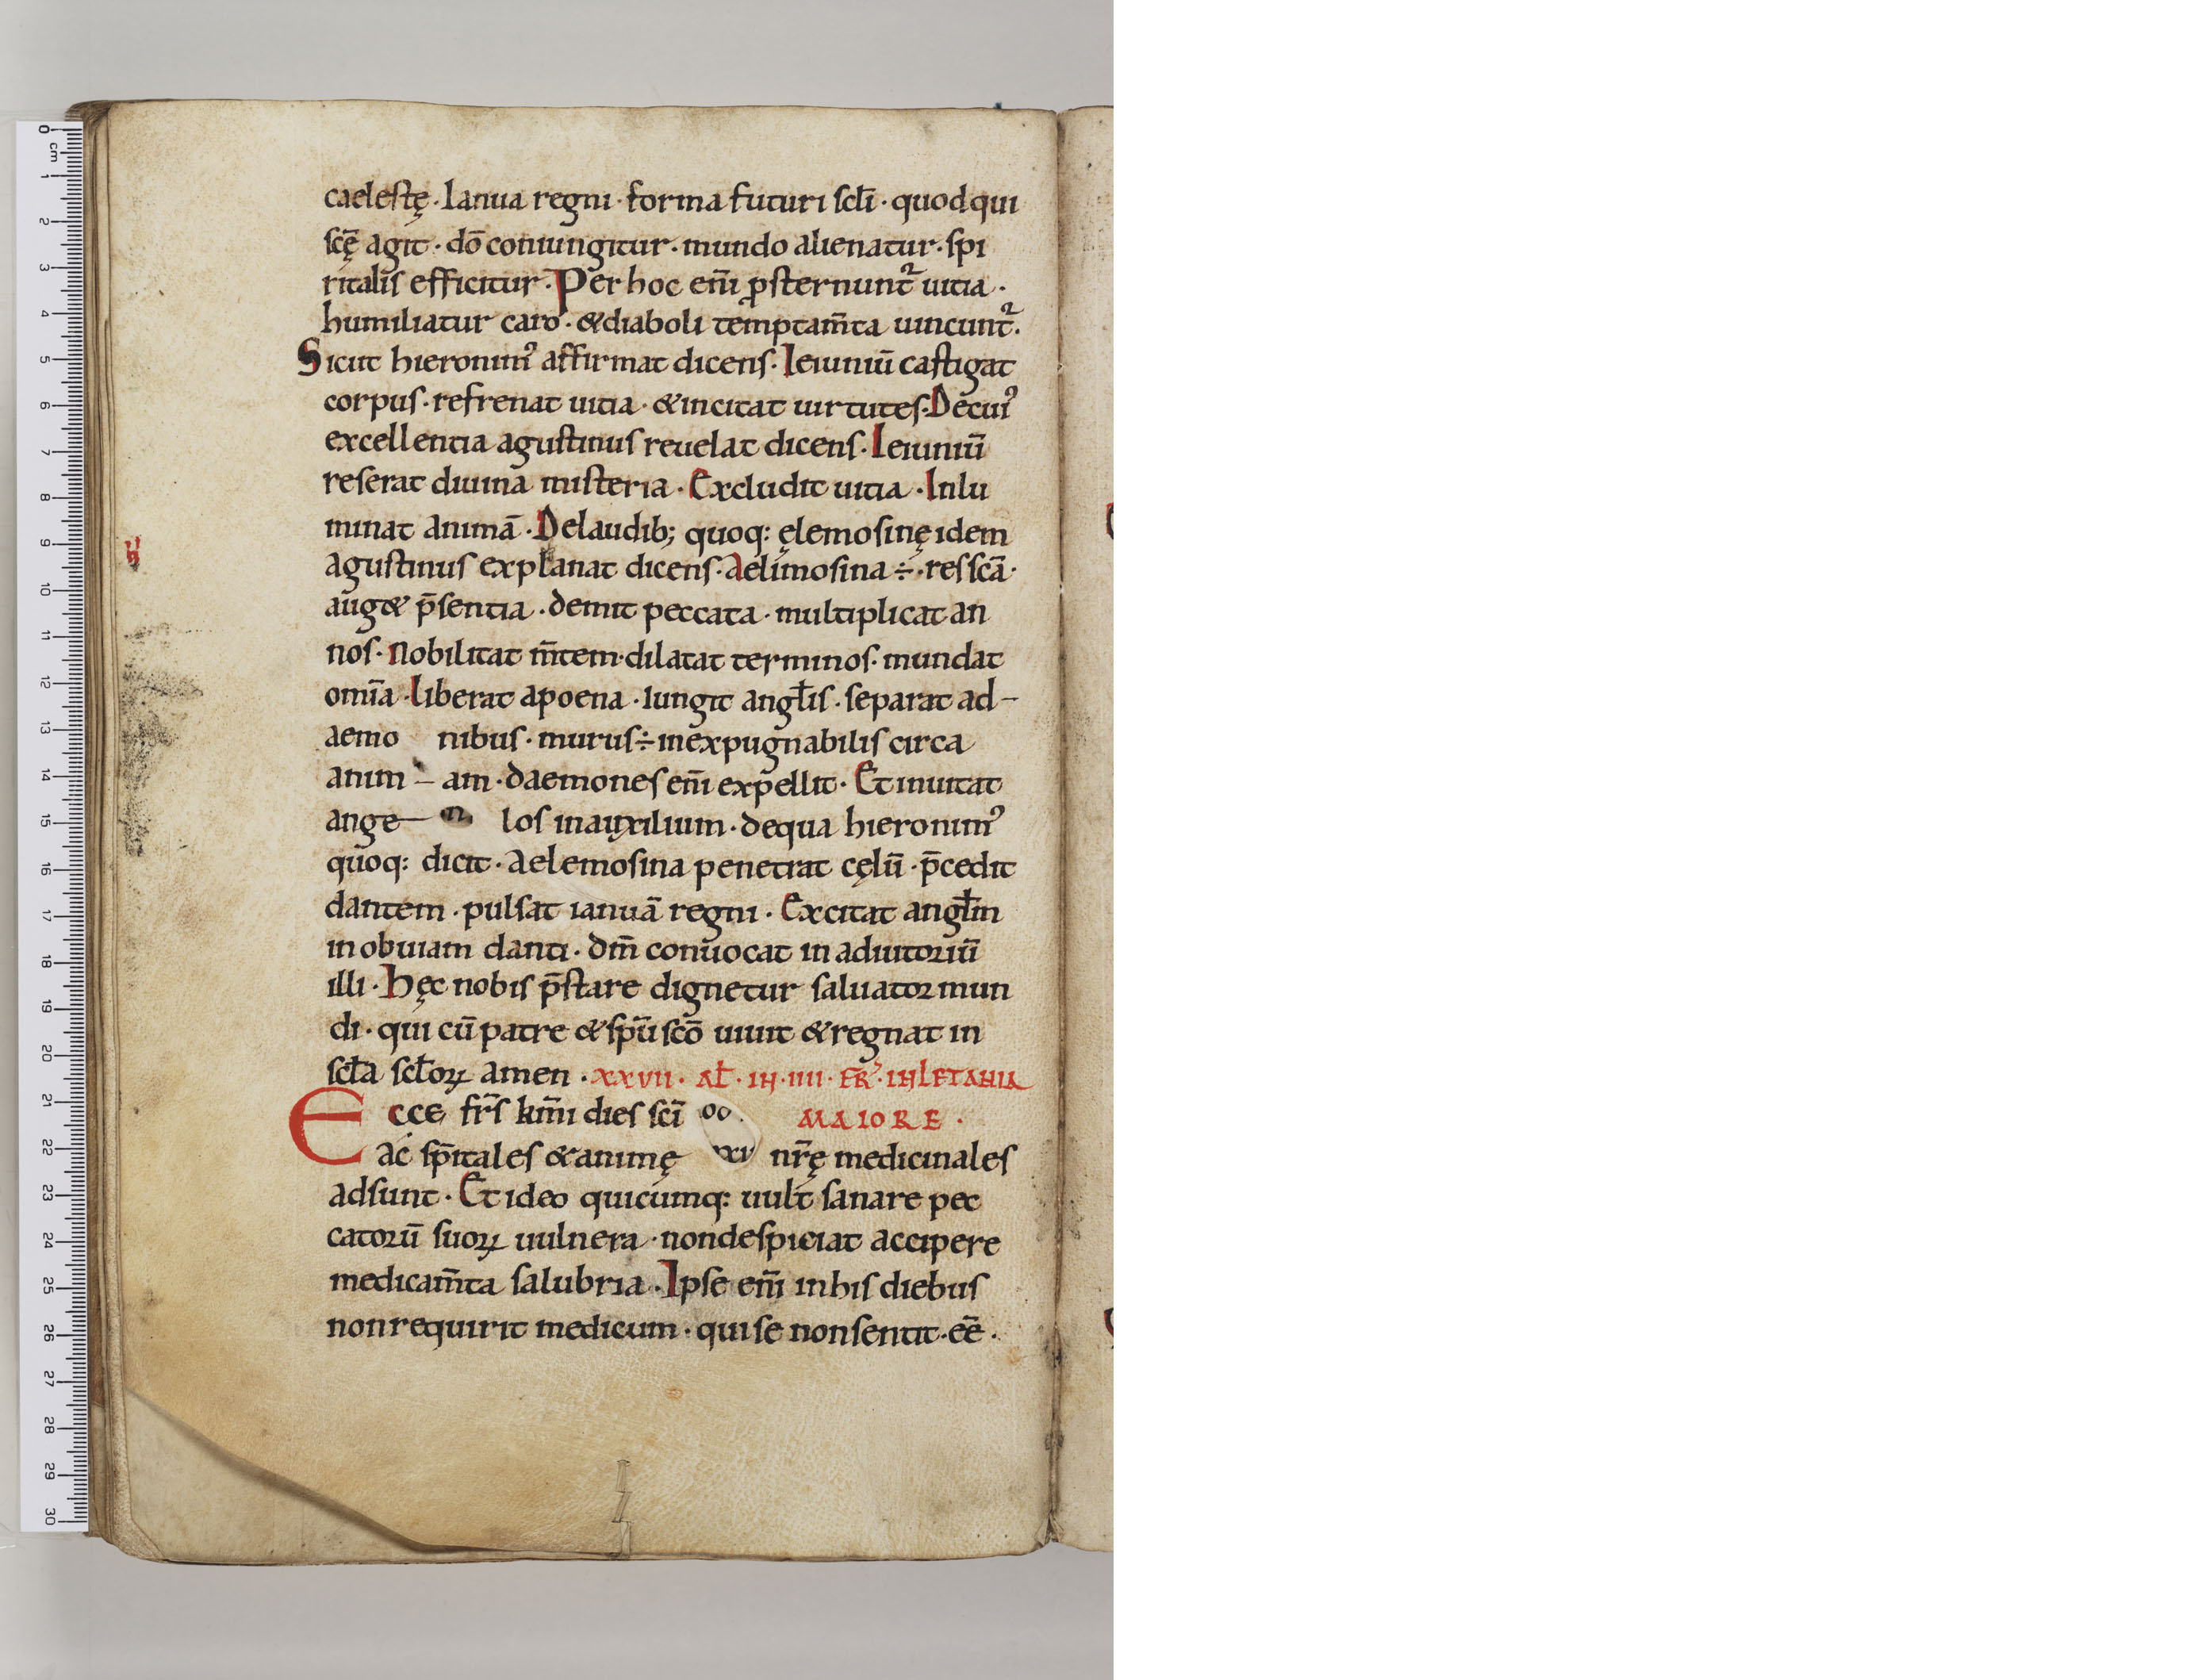 caelestę · Ianua regni · forma futuri sclī · quod qui
scę̄ agit · dō coniungitur · mundo alienatur · spi
ritalis efficitur · Per hoc enī ꝓsternunt᷑ uitia ·
humiliatur caro · & diaboli temptam̄ta uincunt᷑ ·
Sicut hieronimꝰ affirmat dicens · Ieiuniū castigat
corpus · refrenat uitia · & incitat uirtutes · De cuiꝰ
excellentia agustinus reuelat dicens · Ieiuniū
reserat diuina misteria · Excludit uitia · Inlu
minat animā · De laudib; quoq: ęlemosinę idem
agustinus explanat dicens · Aelimosina ÷ · res scā ·
aug& p̄sentia · demit peccata · multiplicat an
nos · Nobilitat m̄tem · dilatat terminos · mundat
omīa · liberat a poena · iungit angłis · separat a d-
aemo nibus · murus ÷ inexpugnabilis circa
anim - am · daemones enī expellit · Et inuitat
ange- los in auxilium · de qua hieronimꝰ
quoq: dicit · Aelemosina penetrat cęlū · p̄cedit
dantem · pulsat ianuā regni · Excitat angłm
in obuiam danti · dm̄ conuocat in adiutoriū
illi · Hęc nobis p̄stare dignetur saluator mun
di · qui cū patre & spū scō uiuit & regnat in
scła scłoꝝ amen · XXVII · AŁ · IN · IIII · FR̄ · IN LETANIA
Ecce fr̄s km̄i dies scī MAIORE ·
ac sp̄itales & animę nr̄ę medicinales
adsunt · Et ideo quicumq: uult sanare pec
catorū suoꝝ uulnera · non despiciat accipere
medicam̄ta salubria · Ipse enī in his diebus
non requirit medicum · qui se non sentit · eē ·